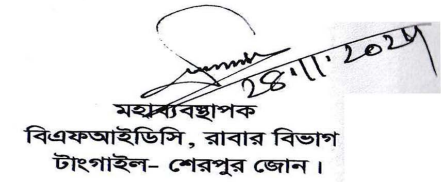 28.11.2024
মহাব্যবস্থাপক
বিএফআইডিসি, রাবার বিভাগ
টাংগাইল- শেরপুর জোন।